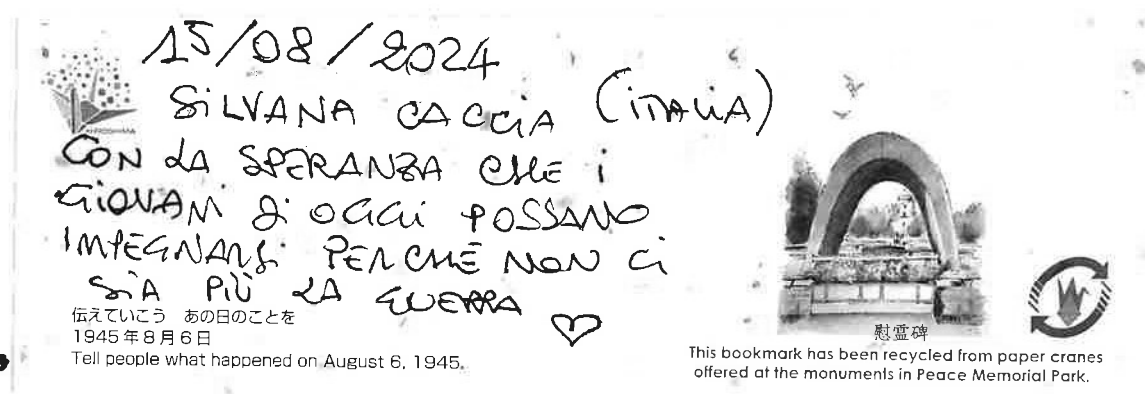 15/08/2024
SILVANA CACCIA (ITALIA)
CON LA SPERANZA CHE I
GIOVANI DI OGGI POSSANO
IMPEGNARSI PERCHÉ NON CI
SIA PIÙ LA GUERRA
HIROSHIMA
伝えていこう あの日のことを
1945年8月6日
Tell people what happened on August 6, 1945.
慰霊碑
This bookmark has been recycled from paper cranes
offered at the monuments in Peace Memorial Park.